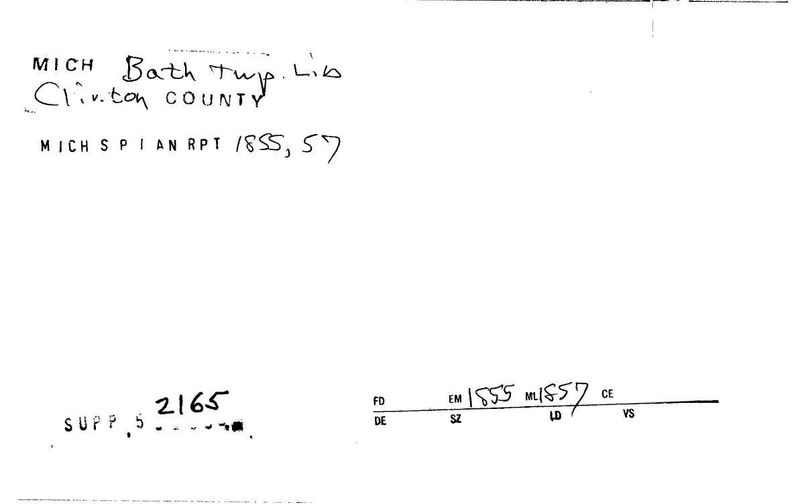 MICH Bath Twp. Lib
Clinton COUNTY
MICH S P I AN RPT 1855, 57
SUPP. 5 2165
FD EM 1855 ML 1857 CE
DE SZ LD VS